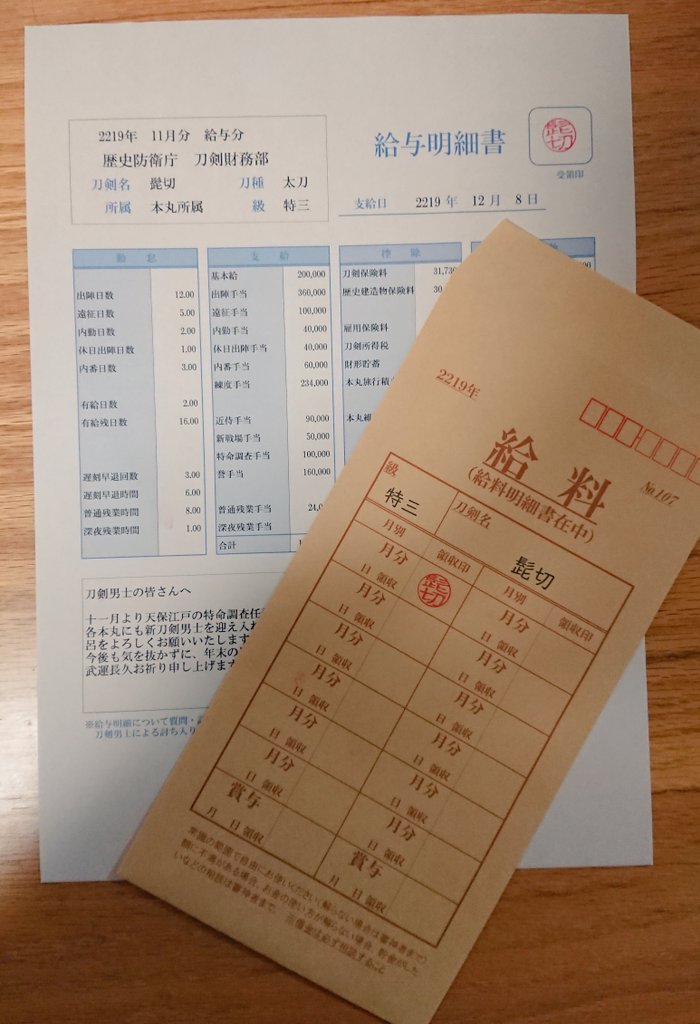 2219年 11月分 給与分
歴史防衛庁 刀剣財務部
刀剣名 髭切 刀種 太刀
所属 本丸所属 級 特三
給与明細書
髭切
受領印
支給日 2219年 12月 8日
勤怠
出陣日数 12.00
遠征日数 5.00
内勤日数 2.00
休日出陣日数 1.00
内番日数 3.00
有給日数 2.00
有給残日数 16.00
遅刻早退回数 3.00
遅刻早退時間 6.00
普通残業時間 8.00
深夜残業時間 1.00
支給
基本給 200,000
出陣手当 360,000
遠征手当 100,000
内勤手当 40,000
休日出陣手当 40,000
内番手当 60,000
練度手当 234,000
近侍手当 90,000
新戦場手当 50,000
特命調査手当 100,000
誉手当 160,000
普通残業手当 24,0
深夜残業手当
合計
控除
刀剣保険料 31,730
歴史建造物保険料 30
雇用保険料
刀剣所得税
財形貯蓄
本丸旅行積
本丸
刀剣男士の皆さんへ
十一月より天保江戸の特命調査任
各本丸にも新刀剣男士を迎え入れ
呂をよろしくお願いいたします
今後も気を抜かずに、年末の
武運長久お祈り申し上げます
※給与明細について質問・
刀剣男士による討ち入り
2219年
給料
(給料明細書在中)
№107
級 特三
刀剣名 髭切
月別 領収印 月別 領収印
月分 月分
日 領収 髭切 日 領収
月分 月分
日 領収 日 領収
月分 月分
日 領収 日 領収
月分 月分
日 領収 日 領収
月分 月分
日 領収 日 領収
賞与 賞与
月 日 領収 月 日 領収
常識の範囲で自由にお使いください(解らない場合は審神者まで)